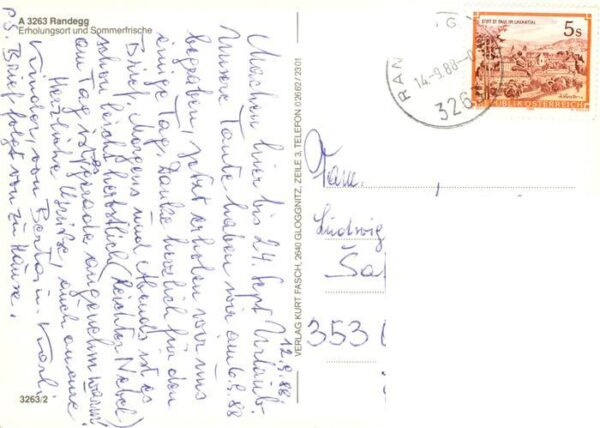 A 3263 Randegg
Erholungsort und Sommerfrische
12.9.88
Machen hier bis 24. Sept Urlaub.
Unsere Tante haben wir am 6.9.88
begraben, jetzt erholen wir uns
einige Tag. Danke herzlich für den
Brief. Morgens und Abends ist es
schon leicht herbstlich (leichter Nebel)
am Tag ist es gerade angenehm warm.
Herzliche Grüße, auch an eure
Kinder, von Berta u. Karl.
P.S. Brief folgt von zu Hause.
3263/2
VERLAG KURT FASCH, 2640 GLOGGNITZ, ZEILE 3, TELEFON 02662/2301
STIFT ST. PAUL IM LAVANTTAL
5s
REPUBLIK ÖSTERREICH
RAN
14-9.88-
3263
Fam.
Ludwig
353